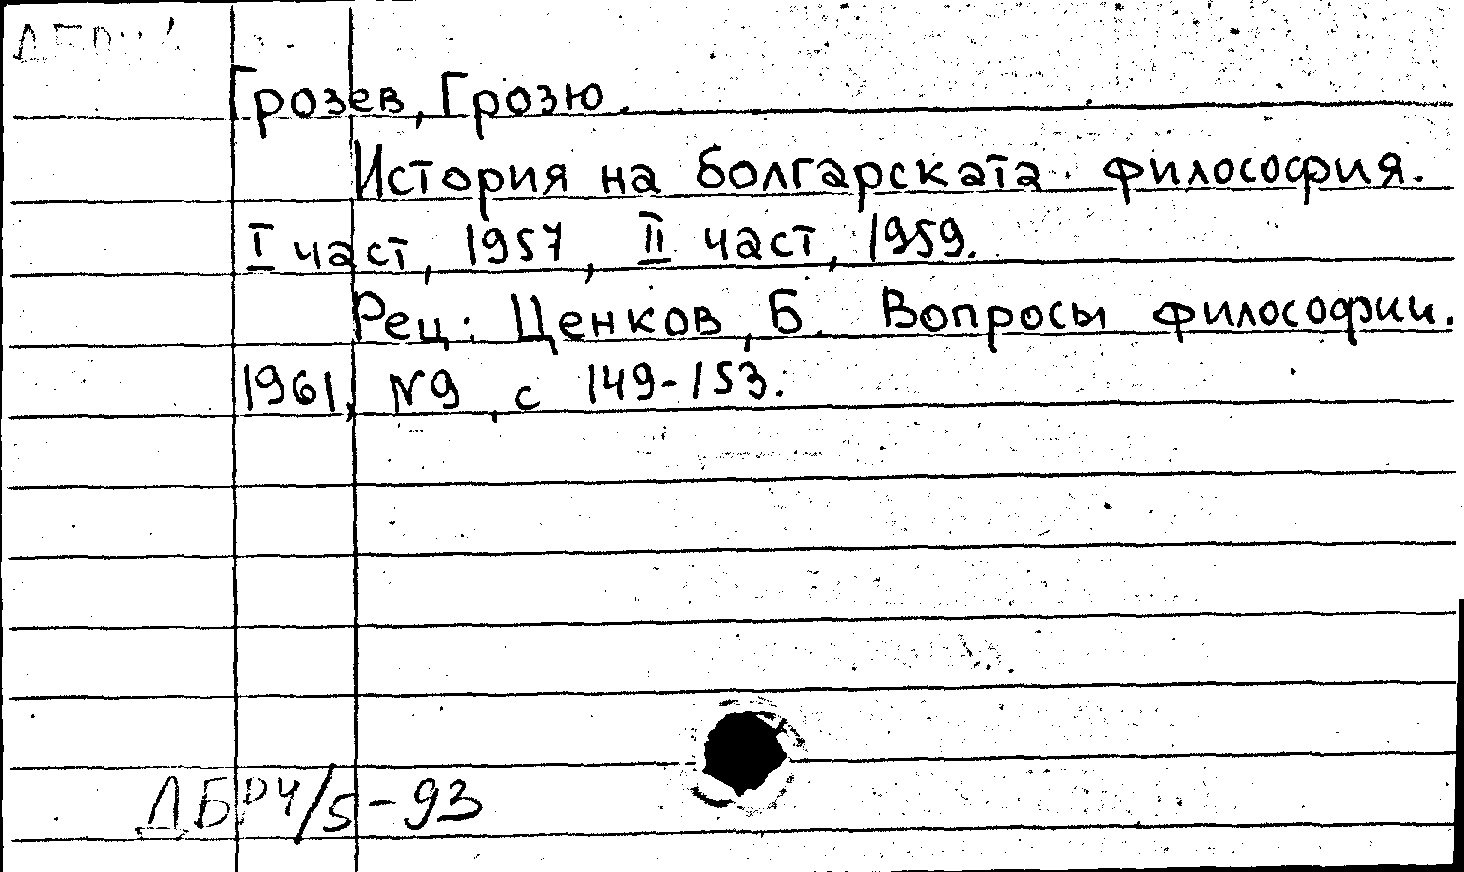 Грозев, Грозю.
История на болгарската философия.
I част, 1957, II част, 1959.
Рец: Ценков, Б. Вопросы философии.
1961, N9, с 149-153.
ДБРЧ/5-93